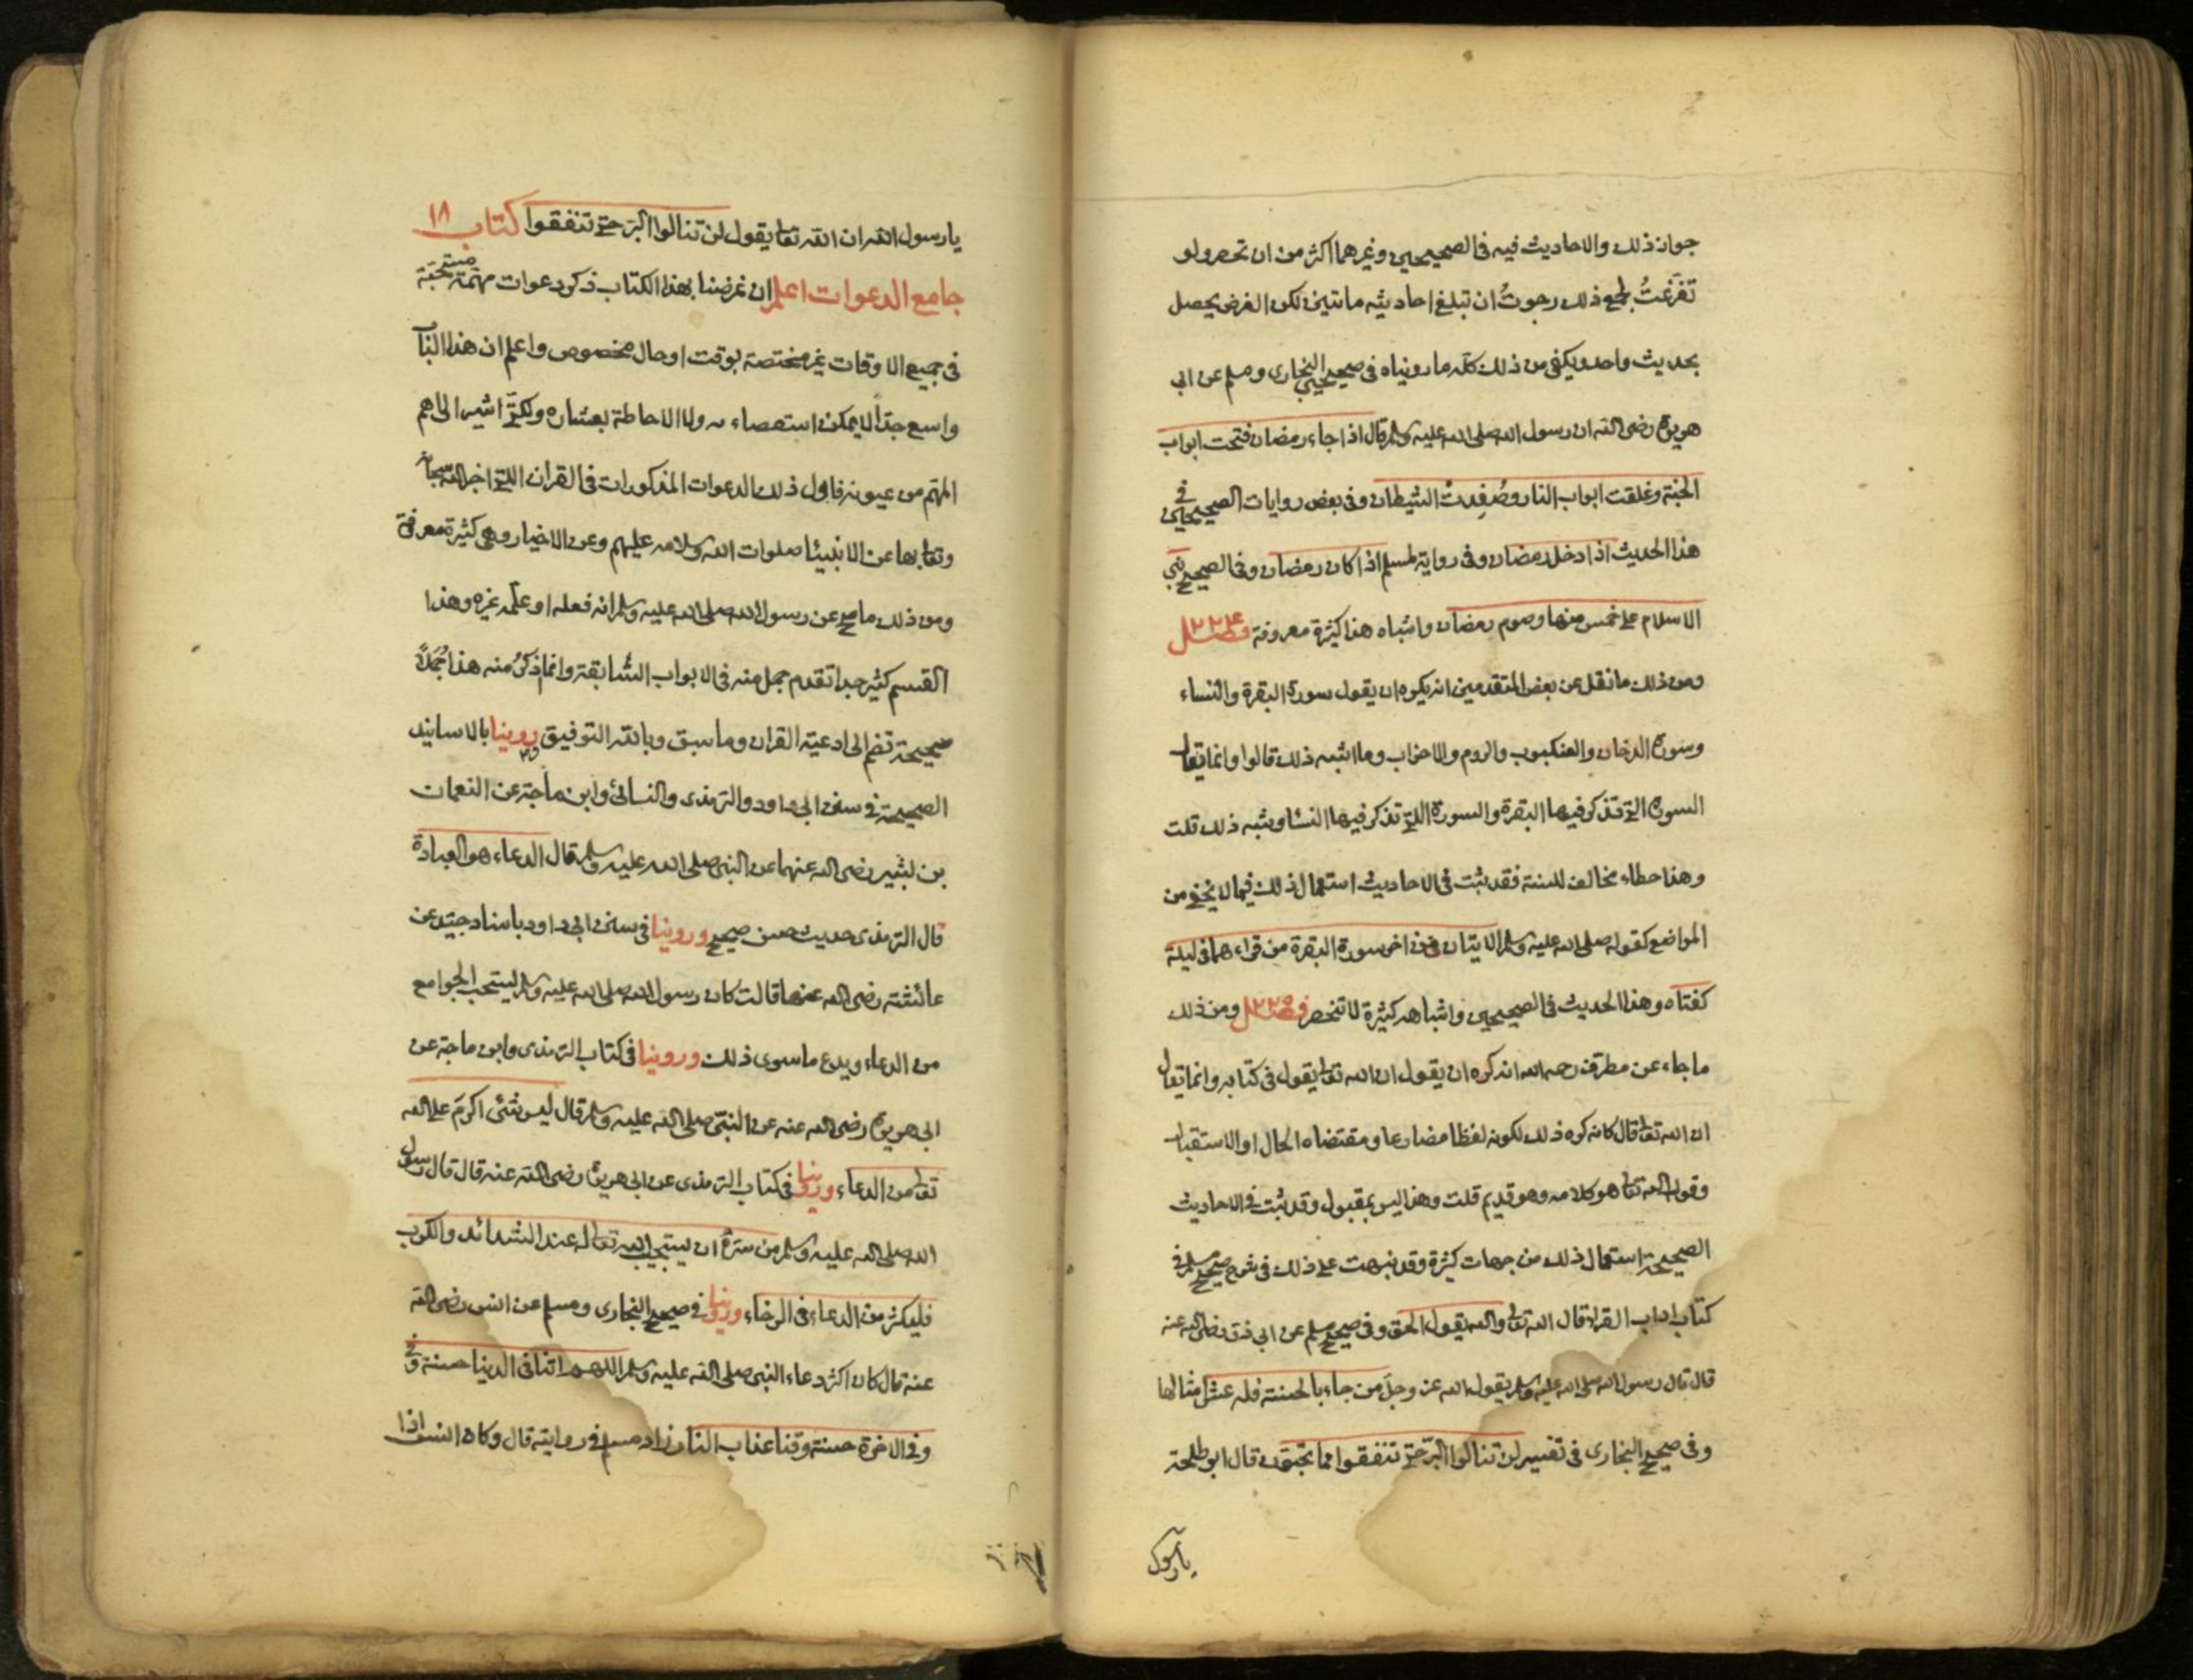 جواز ذلك والاحاديث فيه في الصحيحين وغيرهما اكثر من ان تحصر ولو
تفرغتُ لجمع ذلك رجوتُ ان تبلغ احاديثه مائتين لكن الغرض يحصل
بحديث واحد ويكفي من ذلك كله ما رويناه في صحيحي البخاري ومسلم عن ابي
هريرة رضي الله ان رسول الله صلى الله عليه وسلم قال اذا جاء رمضان فتحت ابواب
الجنة وغلقت ابواب النار وصُفِدتْ الشيطان وفي بعض روايات الصحيحين في
هذا الحديث اذا دخل رمضان وفي رواية لمسلم اذا كان رمضان وفي الصحيح بني
الاسلام على خمس منها وصوم رمضان واشباه هذا كثيرة معروفة فصل ٢٢٤
ومن ذلك ما نقل عن بعض المتقدمين انه يكره ان يقول سورة البقرة والنساء
وسورة الدخان والعنكبوب والروم والاحزاب وما اشبه ذلك قالوا وانما يقال
السورة التي تذكر فيها البقرة والسورة التي تذكر فيها النسا وشبه ذلك قلت
وهذا خطاء مخالف للسنة فقد ثبت في الاحاديث استعمال ذلك فيما لا يخفى من
المواضع كقوله صلى الله عليه وسلم الايتان من اخر سورة البقرة من قراءهما في ليلة
كفتاه وهذا الحديث في الصحيحين واشباهه كثيرة لا تنحصر فصل ٢٢٥ ومن ذلك
ما جاء عن مطرف رحمه الله انه كره ان يقول ان الله تعالى يقول في كتابه وانما يقال
ان الله تعالى قال كانه كره ذلك لكونه لفظا مضارعا ومقتضاه الحال او الاستقبال
وقول الله تعالى هو كلامه وهو قديم قلت وهذا ليس بمقبول وقد ثبت في الاحاديث
الصحيحة استعمال ذلك من جهات كثيرة وقد نبهت على ذلك في شرح صحيح مسلم وفي
كتاب اداب القراء قال الله تعالى والله يقول الحق وفي صحيح مسلم عن ابي ذر رضي الله عنه
قال قال رسول الله صلى الله عليه وسلم يقول الله عز وجل من جاء بالحسنة فله عشر امثالها
وفي صحيح البخاري في تفسير لن تنالوا البرّ حتى تنفقوا مما تحبون قال ابو طلحة
يا رسول
يا رسول الله ان الله تعالى يقول لن تنالوا البرّ حتى تنفقوا كتاب ١٨
جامع الدعوات اعلم ان غرضنا بهذا الكتاب ذكر دعوات مهمّة مستحبّة
في جميع الاوقات غير مختصة بوقت او حال مخصوص واعلم ان هذا الباب
واسع جداً لا يمكن استقصاءه ولا الاحاطة بمعشاره ولكنّي اشير الى اهم
المهّم من عيونه فاول ذلك الدعوات المذكورات في القران التي اخبر الله سبحانه
وتعالى بها عن الانبيئا صلوات الله وسلامه عليهم وعن الاخيار وهي كثيرة معرفة
ومن ذلك ما صح عن رسول الله صلى الله عليه وسلم انه فعله او علّمه غيره وهذا
القسم كثير جدا تقدم جمل منه في الابواب السّابقة وانما ذكرُ منه هذا جُمَلاً
صحيحة تضم الى ادعية القران وما سبق وبالله التوفيق روينا بالاسانيد
الصحيحة في سنن ابي داود والترمذي والنسائي وابن ماجة عن النعمان
بن بشير رضي الله عنهما عن النبي صلى الله عليه وسلم قال الدعاء هو العبادة
قال الترمذي حديث حسن صحيح وروينا في سنن ابي داود باسناد جيّد عن
عائشة رضي الله عنها قالت كان رسول الله صلى الله عليه وسلم يستحب الجوامع
من الدعاء ويدع ما سوى ذلك وروينا في كتاب الترمذي وابن ماجة عن
ابي هريرة رضي الله عنه عن النبيّ صلى الله عليه وسلم قال ليس شئي اكرم على الله
تعالى من الدعاء وروينا في كتاب الترمذي عن ابي هريرة رضي الله عنه قال قال رسول
الله صلى الله عليه وسلم من سرهُ ان يستجيب الله تعالى له عند الشدائد والكرب
فليكثر من الدعاء في الرخاء وروينا في صحيح البخاري ومسلم عن انس رضي الله
عنه قال كان اكثر دعاء النبي صلى الله عليه وسلم اللهم اتنا في الدنيا حسنة وفي
وفي الاخرة حسنة وقنا عذاب النار زاد مسلم في روايته قال وكان انس اذا